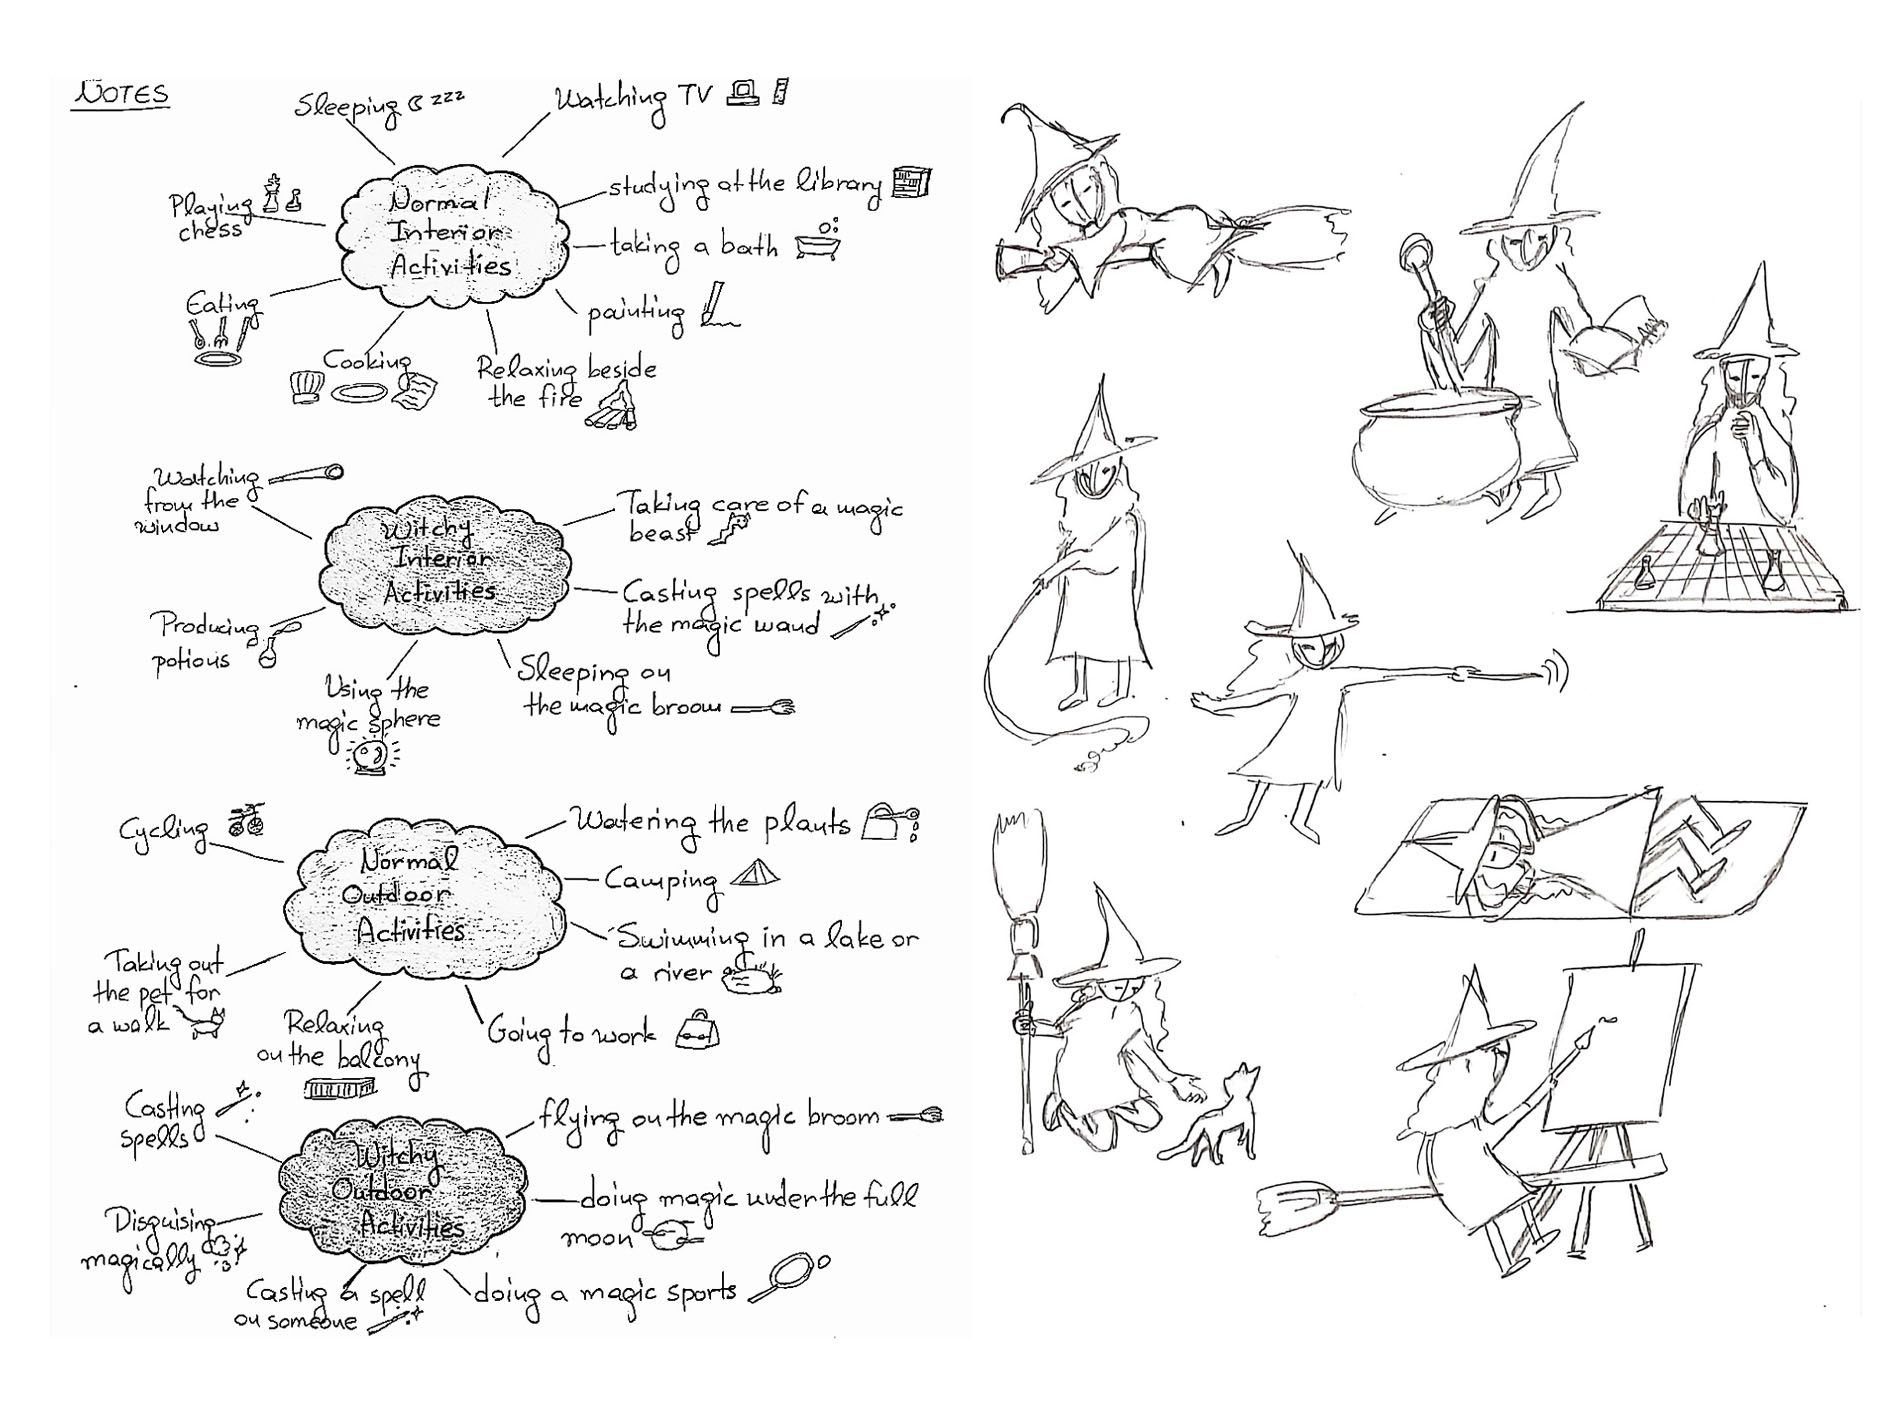 NOTES
Sleeping zzz
Watching TV
studying at the library
taking a bath
painting
Relaxing beside
the fire
Cooking
Eating
Playing
chess
Normal
Interior
Activities
Watching
from the
window
Taking care of a magic
beast
Casting spells with
the magic wand
Sleeping on
the magic broom
Using the
magic sphere
Producing
potions
Witchy
Interior
Activities
Cycling
Watering the plants
Camping
Swimming in a lake or
a river
Going to work
Relaxing
on the balcony
Taking out
the pet for
a walk
Normal
Outdoor
Activities
Casting
spells
flying on the magic broom
doing magic under the full
moon
doing a magic sports
Casting a spell
on someone
Disguising
magically
Witchy
Outdoor
Activities